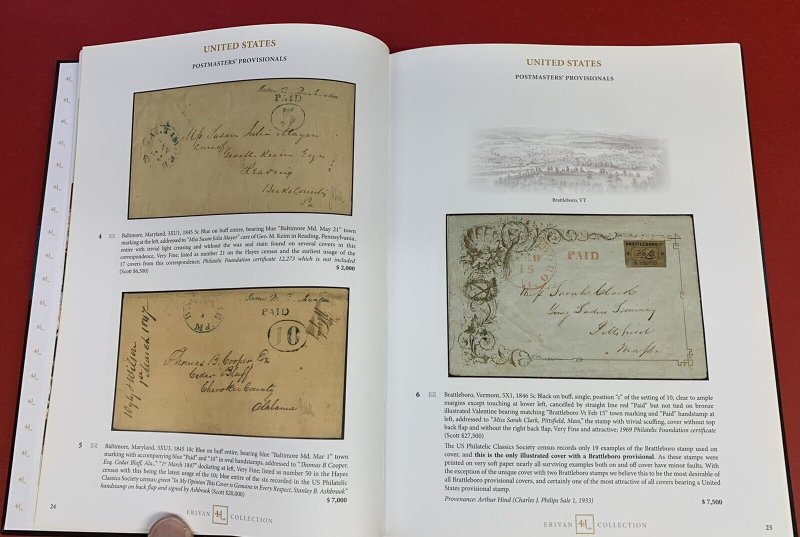 UNITED STATES
POSTMASTERS' PROVISIONALS
James M. Buchanan
PAID
5
Miss Susan Julia Mayer
care of
Geo. M. Keim Esqr
Reading
Berks County
Pa
4 Baltimore, Maryland, 3XU1, 1845 5c Blue on buff entire, bearing blue "Baltimore Md. May 21" town
marking at the left, addressed to "Miss Susan Julia Mayer" care of Geo. M. Keim in Reading, Pennsylvania,
entire with trivial light crossing and without the wax seal stain found on several covers in this
correspondence, Very Fine; listed as number 21 on the Hayes census and the earliest usage of the
17 covers from this correspondence, Philatelic Foundation certificate 12,273 which is not included
(Scott $6,500)
$ 2,000
PAID
10
1st March 1847
Thomas B. Cooper Esq
Cedar Bluff
Cherokee County
Alabama
5 Baltimore, Maryland, 3XU3, 1845 10c Blue on buff entire, bearing blue "Baltimore Md. Mar 1" town
marking with accompanying blue "Paid" and "10" in oval handstamps, addressed to "Thomas B Cooper,
Esq, Cedar Bluff, Ala.," "1st March 1847" docketing at left, Very Fine; listed as number 50 in the Hayes
census with this being the latest usage of the 10c; blue entire of the six recorded in the US Philatelic
Classics Society census; green "In My Opinion This Cover is Genuine in Every Respect, Stanley B. Ashbrook"
handstamp on back flap and signed by Ashbrook (Scott $20,000)
$ 7,000
24
ERIVAN COLLECTION
UNITED STATES
POSTMASTERS' PROVISIONALS
Brattleboro, VT
FEB
15
PAID
BRATTLEBORO VT
Miss Sarah Clark
Young Ladies Seminary
Pittsfield
Mass.
6 Brattleboro, Vermont, 5X1, 1846 5c Black on buff, single, position "c" of the setting of 10, clear to ample
margins except touching at lower left, cancelled by straight line red "Paid" but not tied on bronze
illustrated Valentine bearing matching "Brattleboro Vt Feb 15" town marking and "Paid" handstamp at
left, addressed to "Miss Sarah Clark, Pittsfield, Mass," the stamp with trivial scuffing, cover without top
flap and without the right back flap, Very Fine and attractive; 1969 Philatelic Foundation certificate
(Scott $27,500)
The US Philatelic Classics Society census records only 19 examples of the Brattleboro stamp used on
cover, and this is the only illustrated cover with a Brattleboro provisional. As these stamps were
printed on very soft paper nearly all surviving examples both on and off cover have minor faults. With
the exception of the unique cover with two Brattleboro stamps we believe this to be the most desirable of
all Brattleboro provisional covers, and certainly one of the most attractive of all covers bearing a United
States provisional stamp.
Provenance: Arthur Hind (Charles J. Philips Sale 1, 1933)
$ 7,500
ERIVAN COLLECTION
25